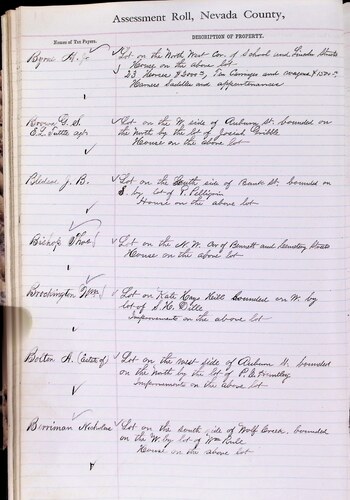 Assessment Roll, Nevada County,
Names of Tax Payers.
DESCRIPTION OF PROPERTY.
Byrne A.
Lot on the North West Cor of School and Streets
House on the above lot
23 Horses $2000, Ten Carriages and wagons $1500
Harness Saddles and appurtenances
G. S.
Lot on the W. side of Auburn St. bounded on
E. L. Tuttle agt
the North by the lot of Josiah
House on the above lot
Bledsoe J. B.
Lot on the side of Bank St. bounded on
S by lot of
House on the above lot
Bishop Thos
Lot on the N. W. Cor of Bennett and Streets
House on the above lot
Brockington Wm
Lot on Kate Hays Hill bounded on W. by
lot of S. H. Dille
Improvements on the above lot
Bolton A. (Estate of)
Lot on the West side of Auburn St. bounded
on the North by the lot of P.
Improvements on the above lot
Berriman Nicholas
Lot on the south side of Wolf Creek bounded
on the W. by lot of Wm
House on the above lot